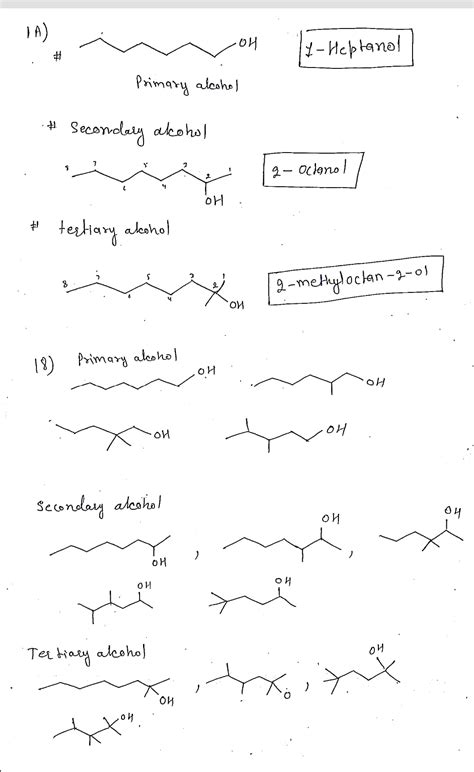 1A)
# OH 1-Heptanol
Primary alcohol
# Secondary alcohol
8 7 6 5 4 3 2 1
OH
2-Octanol
# tertiary alcohol
8 7 6 5 4 3 2 1
OH
2-methyloctan-2-ol
1B) Primary alcohol
OH OH
OH OH
Secondary alcohol
OH , OH , OH
OH OH
Tertiary alcohol
OH , O , OH
OH